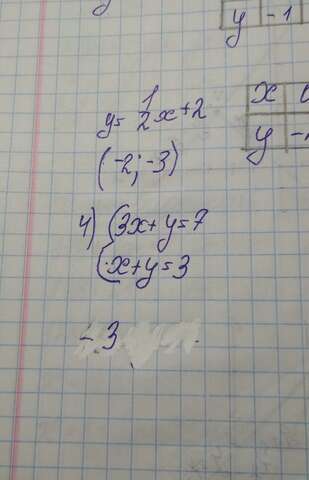 y -1
x
y
y = 1/2 x + 2
(-2; -3)
4) { 3x + y = 7
x + y = 3
-3